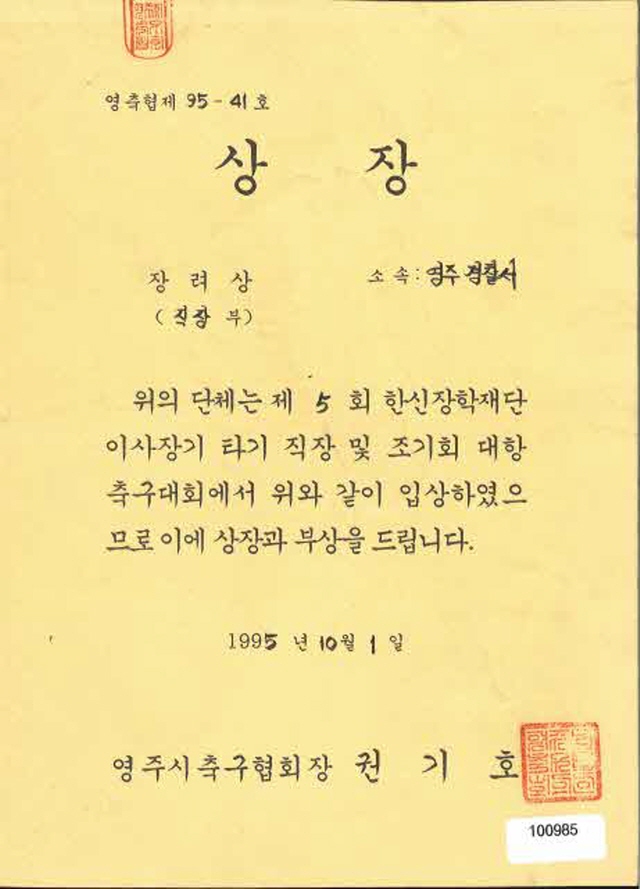 영축협제 95-41 호
상 장
장려상
소속: 영주경찰서
(직장 부)
위의 단체는 제 5 회 한신장학재단
이사장기 타기 직장 및 조기회 대항
축구대회에서 위와 같이 입상하였으
므로 이에 상장과 부상을 드립니다.
1995 년 10월 1 일
영주시축구협회장 권 기 호
100985